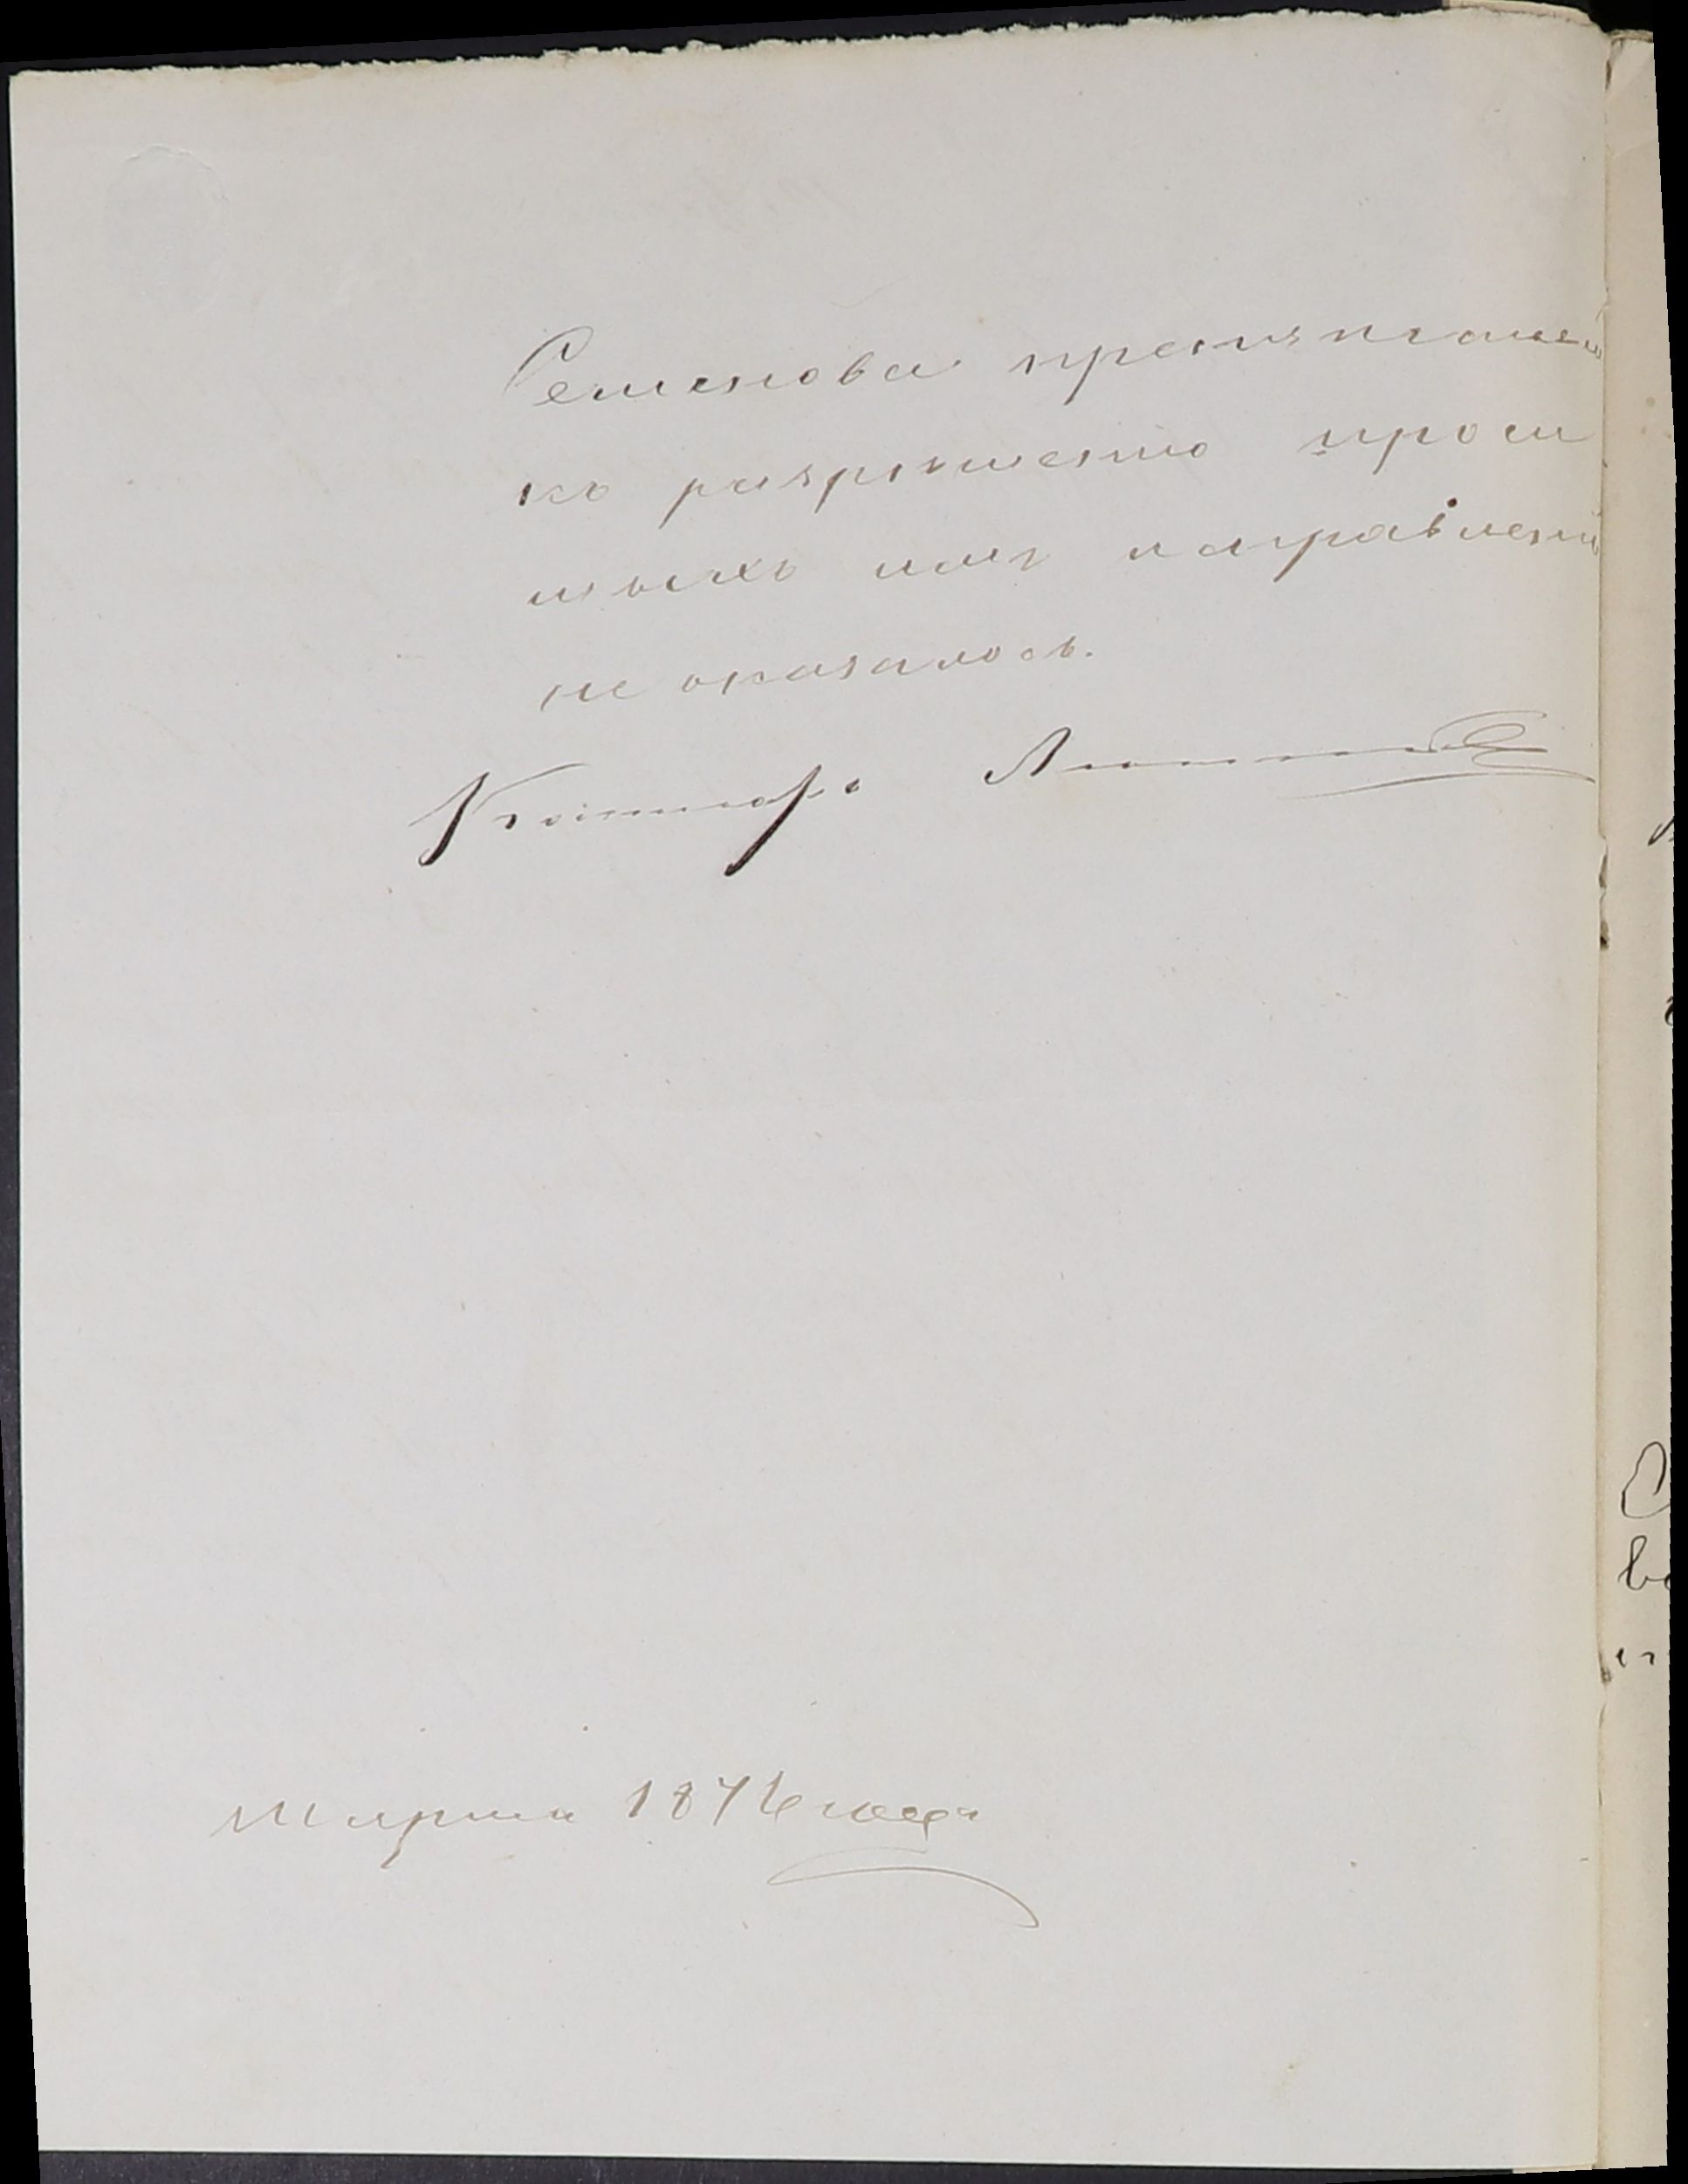 Семенова препятствій
къ разрѣшенію проси
мыхъ имъ исправленій
не оказалось.
Марта 1876 года